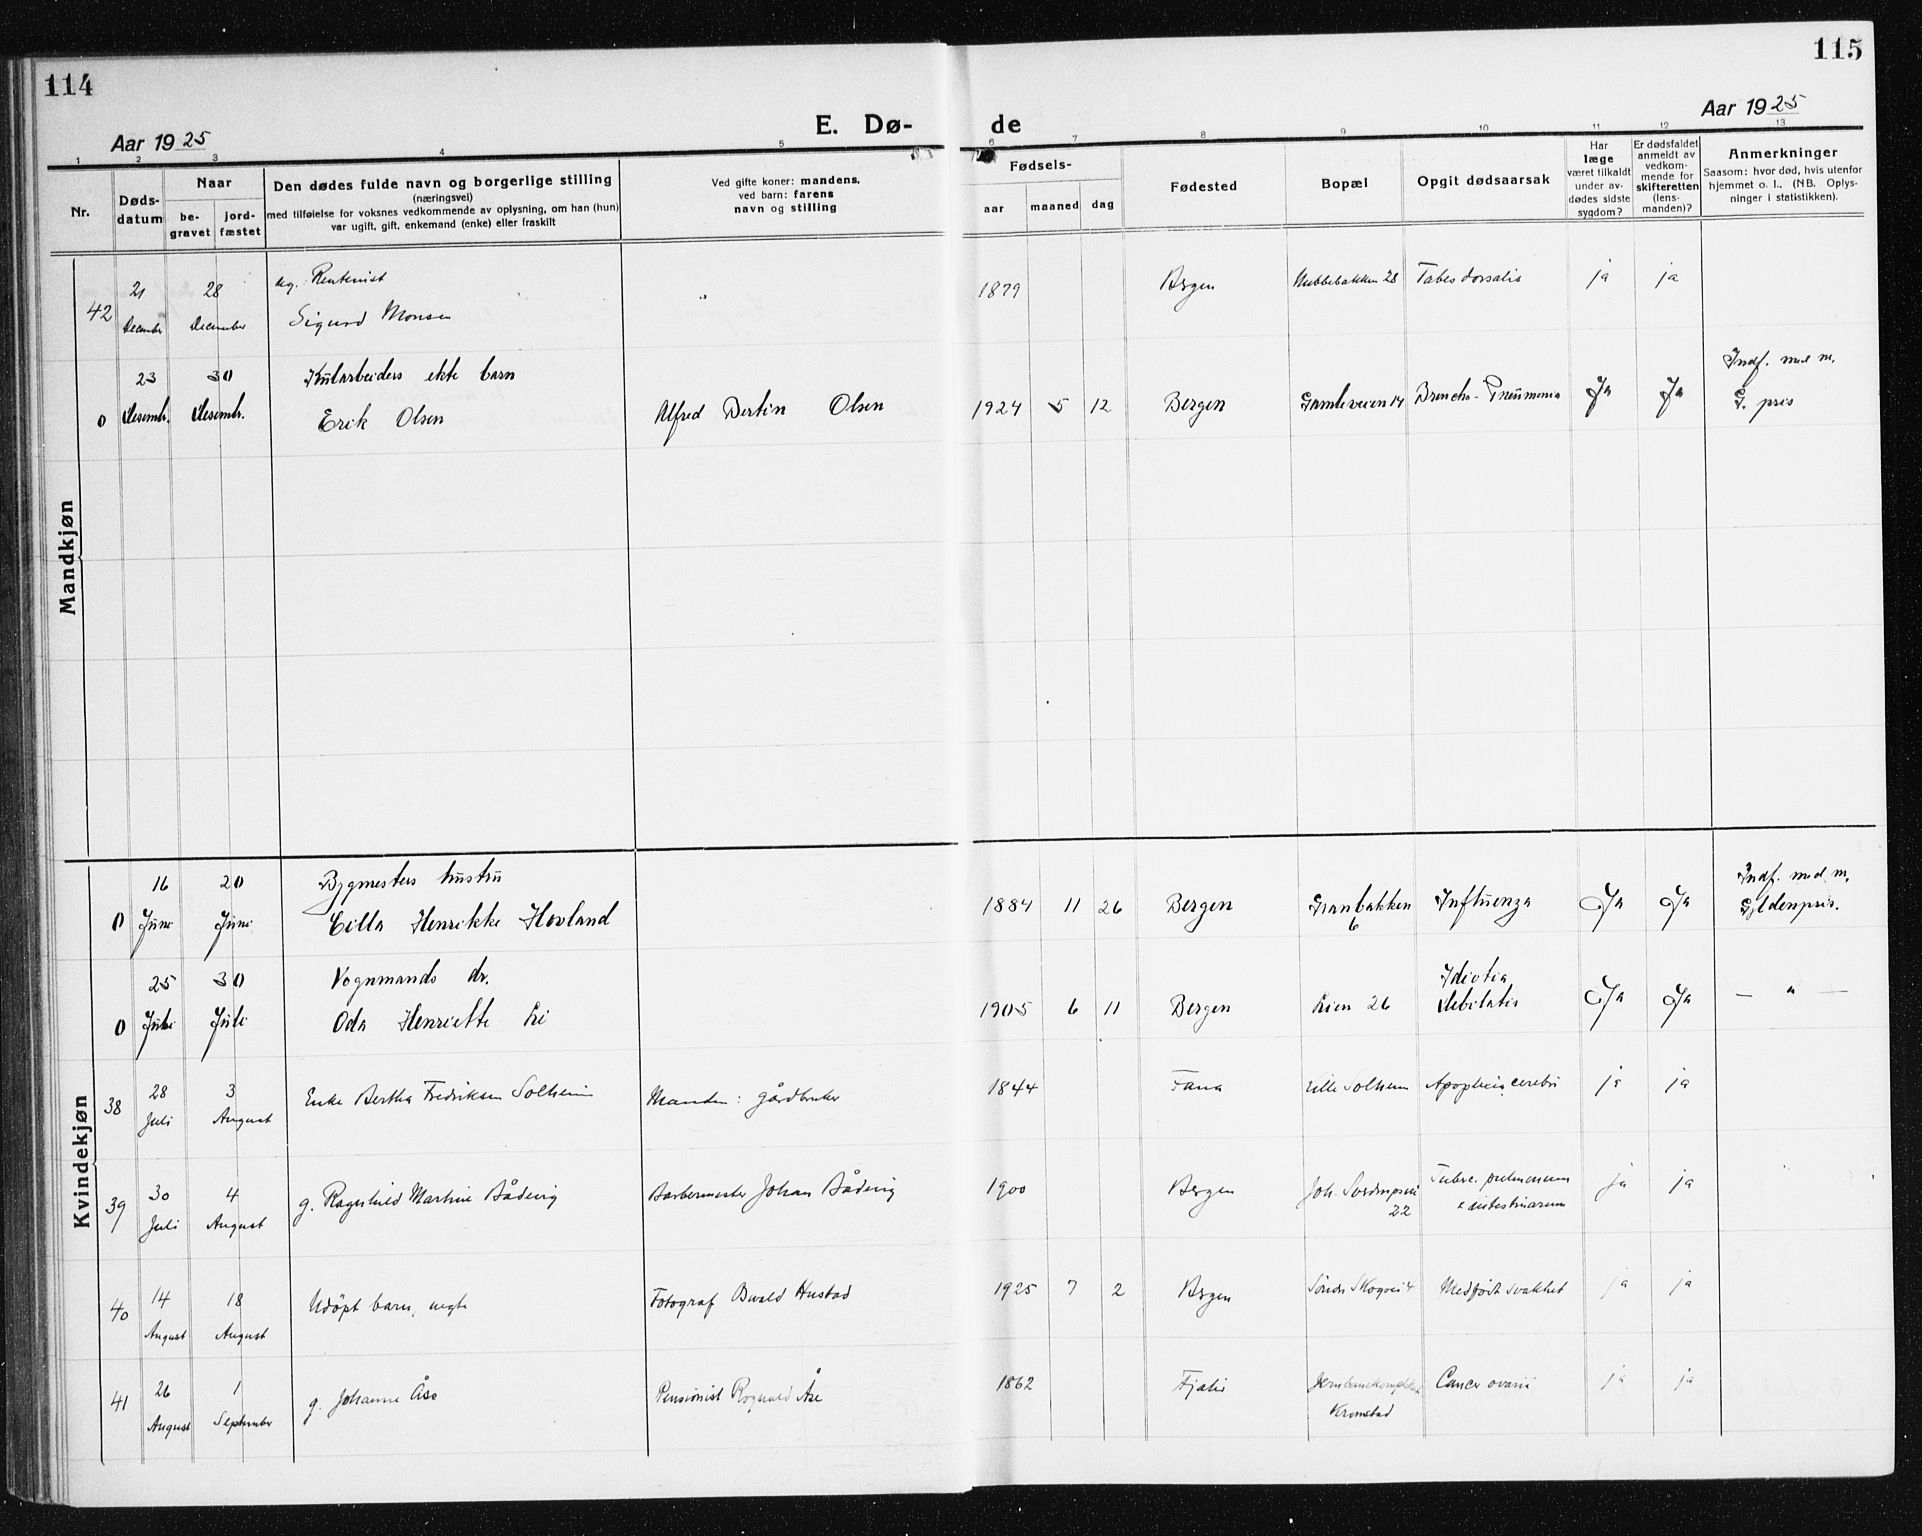 114
115
Aar 1925
E. Dø-
de
Aar 1925
1 2 3 4 5 6 7 8 9 10 11 12 13
Nr.
Døds-
datum
Naar
be-
gravet
jord-
fæstet
Den dødes fulde navn og borgerlige stilling
(næringsvei)
med tilføielse for voksnes vedkommende av oplysning, om han (hun)
var ugift, gift, enkemand (enke) eller fraskilt
Ved gifte koner: mandens,
ved barn: farens
navn og stilling
Fødsels-
aar
maaned
dag
Fødested
Bopæl
Opgit dødsaarsak
Har
læge
været tilkaldt
under av-
dødes sidste
sygdom?
Er dødsfaldet
anmeldt av
vedkom-
mende for
skifteretten
(lens-
manden)?
Anmerkninger
Saasom: hvor død, hvis utenfor
hjemmet o. l., (NB. Oplys-
ninger i statistikken).
Mandkjøn
42 21 December 28 December
ug. Rentenist
Sigurd Monsen
1879 Bergen Nubbebakken 28 Tabes dorsalis ja ja
0 23 Desembr. 30 Desembr.
Kularbeiders ekte barn
Erik Olsen
Alfred Bertin Olsen 1924 5 12 Bergen Gamleveien 14 Broncho-Pneumonia Ja Ja
Indf. med m.
G. pris
Kvindekjøn
0 16 Juni 20 Juni
Bygmesters hustru
Cilla Henrikke Hovland
1884 11 26 Bergen Granbakken 6 Influenza Ja Ja
Indf. med m.
Gyldenpris.
0 25 Juli 30 Juli
Vognmands dr.
Oda Henriette Li
1905 6 11 Bergen Lien 26
Idiotia
Debilatis
Ja Ja — " —
38 28 Juli 3 August
Enke Bertha Fredriksen Solheim
Manden: gårdbruker
1844 Fana Lille Solheim Apoplexia cerebri ja ja
39 30 Juli 4 August
g. Ragnhild Martine Bådsvig
Barbermester Johan Bådsvig
1900 Bergen 22
Tuberc. pulmonum
& intestinarum
ja ja
40 14 August 18 August
Udøpt barn, uegte
Fotograf Hustad
1925 7 2 Bergen Søndr Skogvei 4 Medfødt svakhet ja ja
41 26 August 1 September
g. Johanne Åse
Pensionist Rognald Åse
1862 Fjaler
Kronstad
Cancer ovarii ja ja